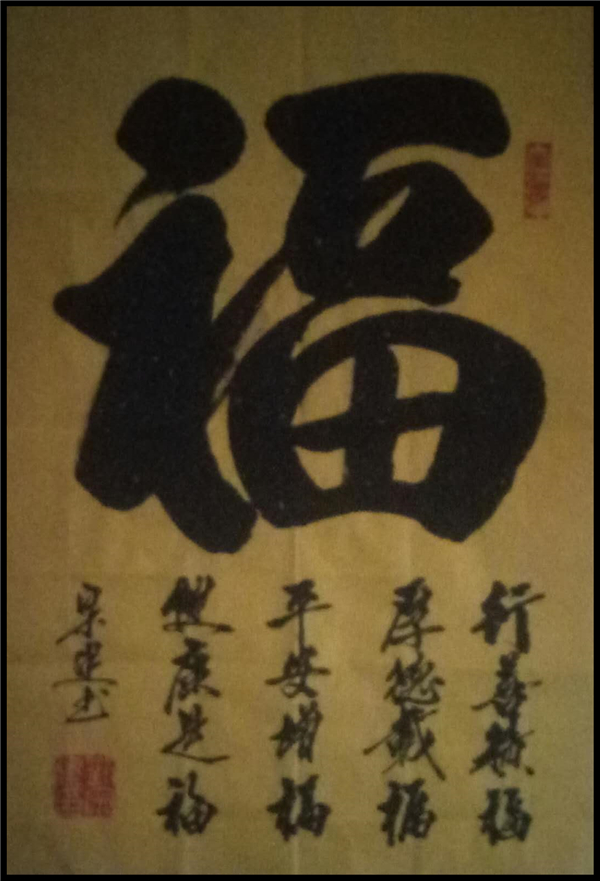 福
行善积福
厚德载福
平安增福
健康是福